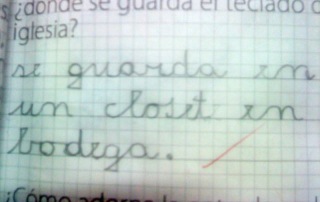 ¿donde se guarda el teclado
iglesia?
se guarda en
un closet en
bodega.
¿Cómo